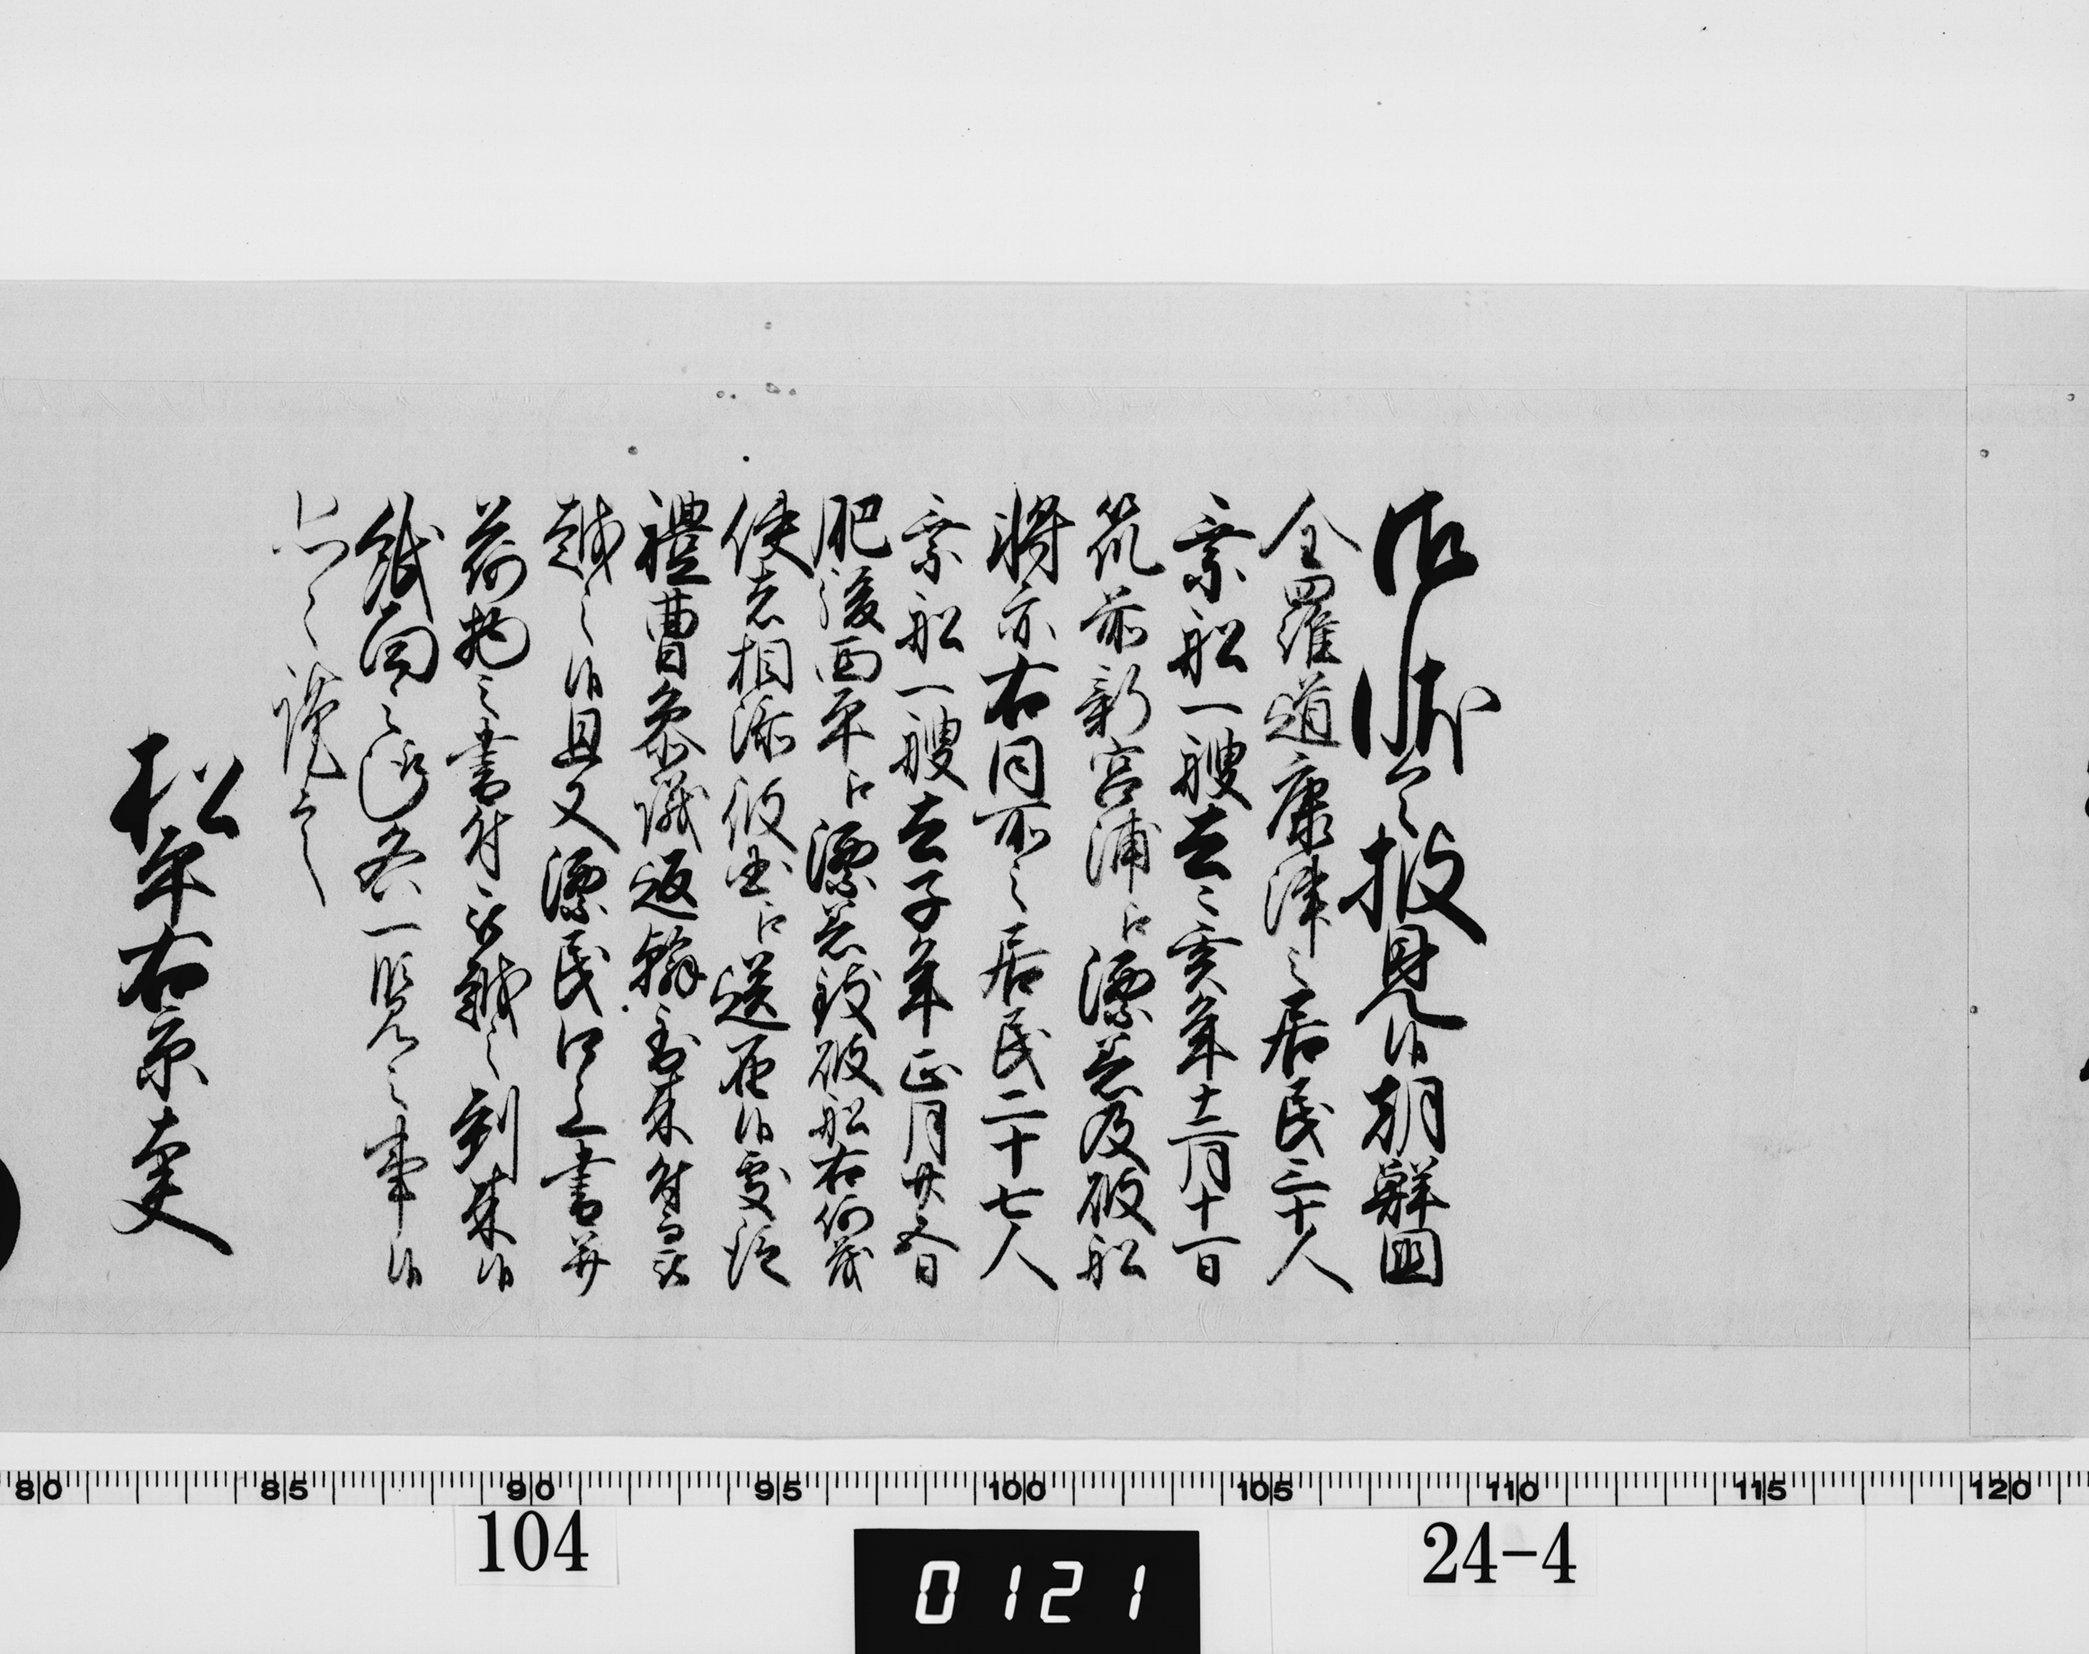 御状令披見候朝鮮国
全羅道康津之居民三十人
乗船一艘去々亥年十二月十一日
筑前新宮浦江漂着及破船
将亦右同所之居民二十七人
乗船一艘去子年正月廿五日
肥後西平江漂着致破船右何茂
使者相添彼国江送届候処従
禮曹参議返翰到来付而被
越之候且又漂民口上書并
荷物之書付被越之到来候
紙面之趣各一覧之事候
恐々謹言
松平右京大夫
80 85 90 95 100 105 110 115 120
104
0121
24-4